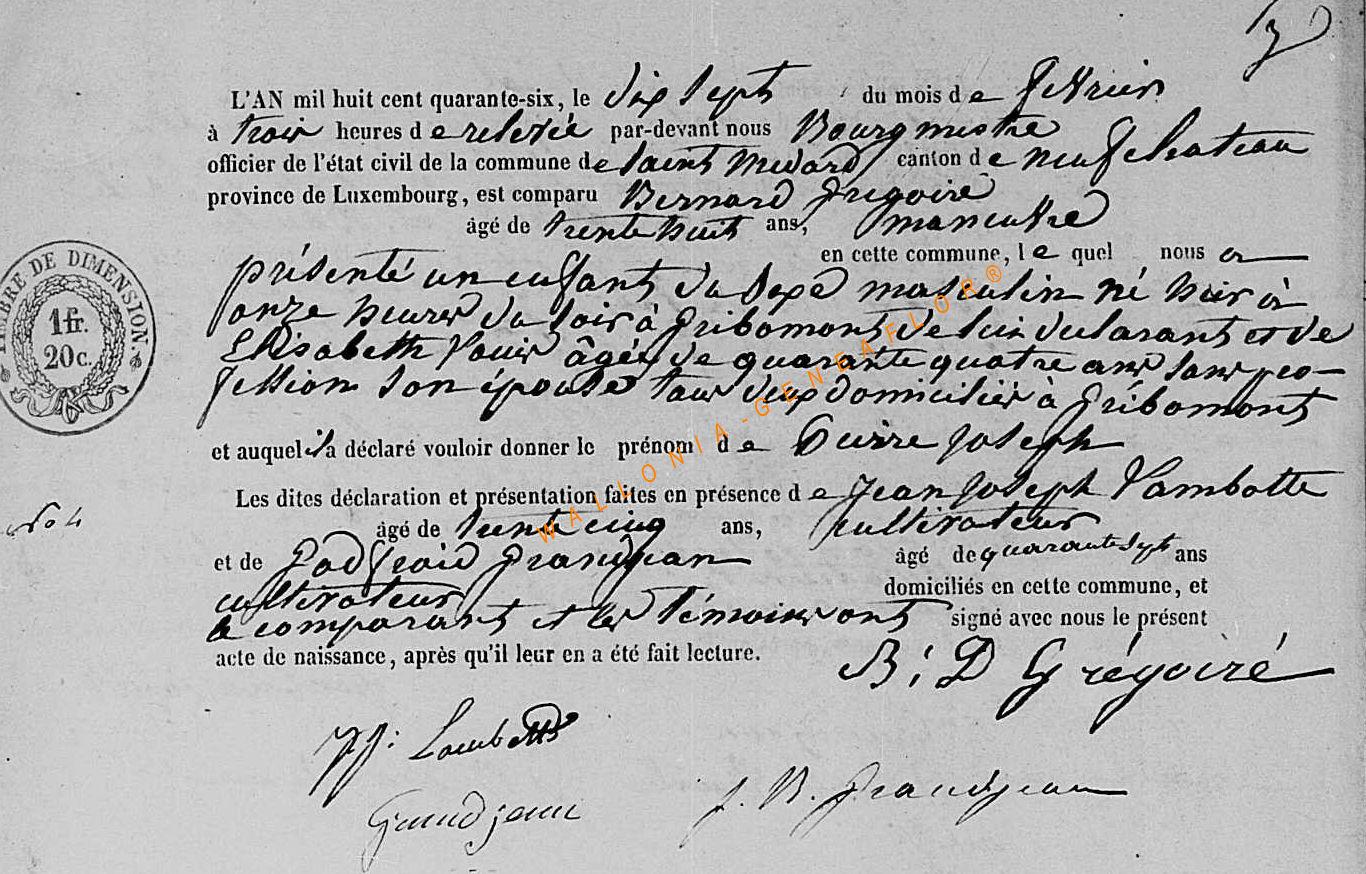 3
L'AN mil huit cent quarante-six, le dix sept du mois de février
à trois heures de relevée par-devant nous Bourgmestre
officier de l'état civil de la commune de Saint Médard canton de neufchateau
province de Luxembourg, est comparu Bernard Grégoire
âgé de trente huit ans, maneuvre
en cette commune, le quel nous a
présenté un enfant du sexe masculin né hier à
onze heures du soir à Gribomont de lui déclarant et de
Elisabeth âgée de quarante quatre ans sans pro-
fession son épouse tous deux domiciliés à Gribomont
et auquel il a déclaré vouloir donner le prénom de Pierre Joseph
Les dites déclaration et présentation faites en présence de Jean Joseph Lambotte
âgé de trente cinq ans, cultivateur
et de Godfroid Grandjean âgé de quarante sept ans
cultivateur domiciliés en cette commune, et
le comparant et les témoins ont signé avec nous le présent
acte de naissance, après qu'il leur en a été fait lecture.
TIMBRE DE DIMENSION
1 fr.
20 c.
No 4
B: D Grégoire
JJ: Lambotte
Grandjean
J. B. Grandjean
WALLONIA-GENEAFLOR®